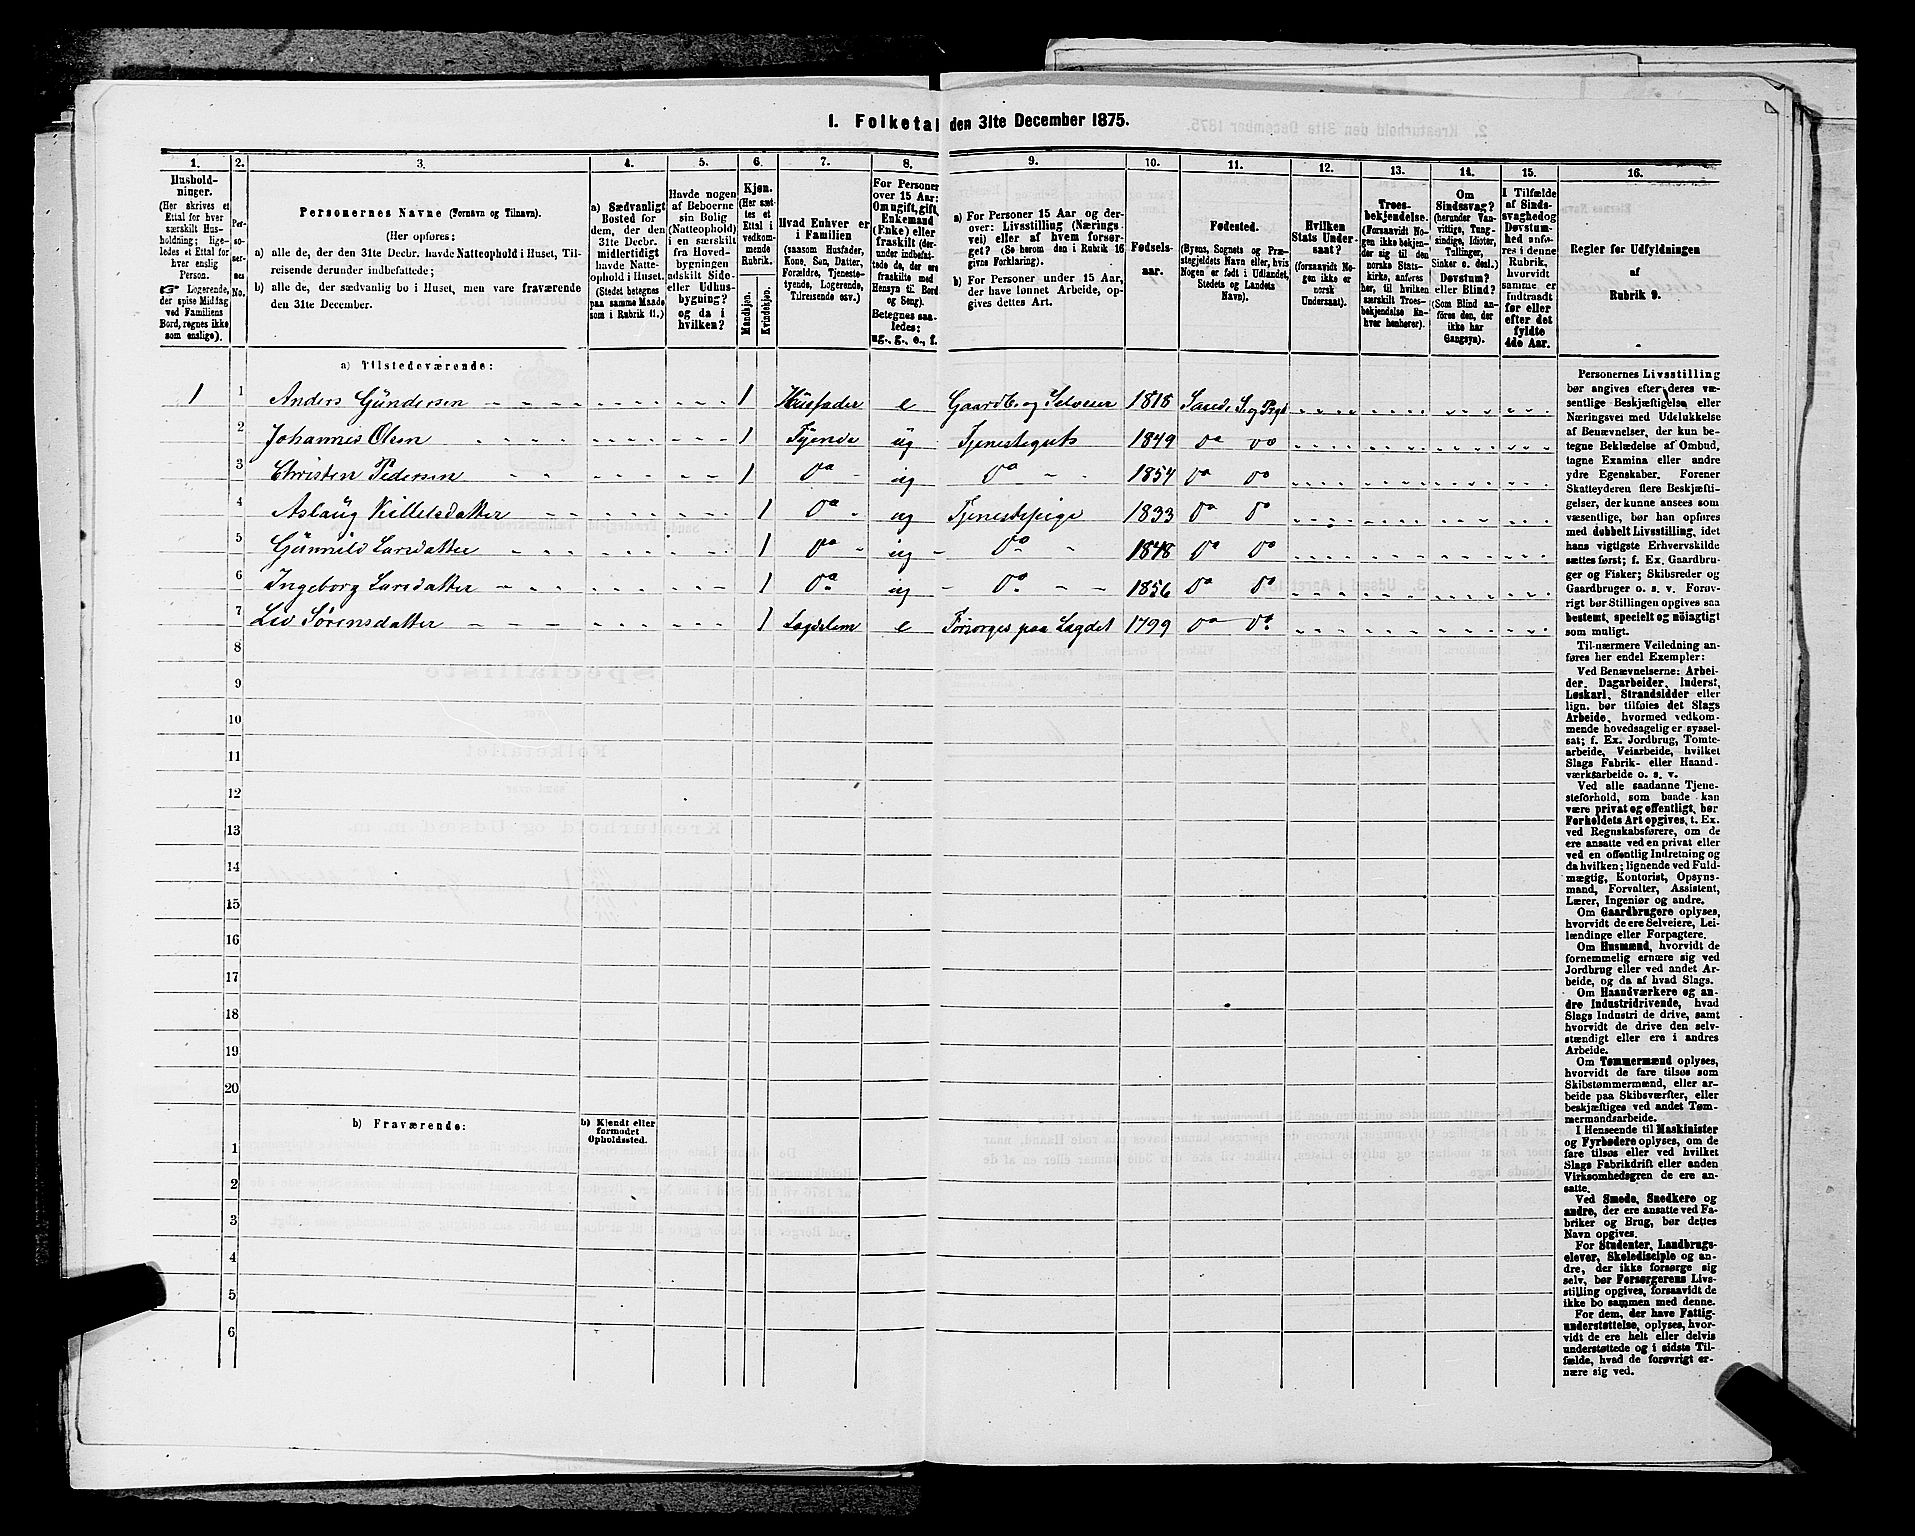 1. Folketal den 31te December 1875.
1. 2. 3. 4. 5. 6. 7. 8. 9. 10. 11. 12. 13. 14. 15. 16.
Hushold-
ninger.
(Her skrives et
Ettal for hver
særskilt Hus-
holdning; lige-
ledes et Ettal for
hver enslig
Person.
☞ Logerende,
der spise Middag
ved Familiens
Bord, regnes ikke
som enslige).
Per-
so-
ner-
nes
No.
Personernes Navne (Fornavn og Tilnavn).
(Her opføres:
a) alle de, der den 31te Decbr. havde Natteophold i Huset, Til-
reisende derunder indbefattede;
b) alle de, der sædvanlig bo i Huset, men vare fraværende
den 31te December.
a) Sædvanligt
Bosted for
dem, der den
31te Decbr.
midlertidigt
havde Natte-
ophold i Huset.
(Stedet betegnes
paa samme Maade
som i Rubrik 11.)
Havde nogen
af Beboerne
sin Bolig
(Natteophold)
i en særskilt
fra Hoved-
bygningen
adskilt Side-
eller Udhus-
bygning?
og da i
hvilken?
Kjøn.
(Her sæt-
tes et
Ettal i
vedkom-
mende
Rubrik.
Mandkjøn.
Kvindekjøn.
Hvad Enhver er
i Familien
(saasom Husfader,
Kone, Søn, Datter,
Forældre, Tjeneste-
tyende, Logerende,
Tilreisende osv.)
For Personer
over 15 Aar:
Om ugift, gift,
Enkemand
(Enke) eller
fraskilt (der-
under indbefat-
tede de, der ere
fraskilte med
Hensyn til Bord
og Seng).
Betegnes saa-
ledes:
ug., g., e., f.
a) For Personer 15 Aar og der-
over: Livsstilling (Nærings-
vei) eller af hvem forsør-
get? (Se herom den i Rubrik 16
givne Forklaring).
b) For Personer under 15 Aar,
der have lønnet Arbeide, op-
gives dettes Art.
Fødsels-
aar.
Fødested.
(Byens, Sognets og Præ-
stegjeldets Navn eller, hvis
Nogen er født i Udlandet,
Stedets og Landets
Navn).
Hvilken
Stats Under-
saat?
(forsaavidt No-
gen ikke er
norsk
Undersaat).
Troes-
bekjendelse.
(Forsaavidt No-
gen ikke bekjen-
der sig til den
norske Stats-
kirke, anføres
her, til hvilken
særskilt Troes-
bekjendelse En-
hver henhører).
Om
Sindssvag?
(herunder Van-
vittige, Tung-
sindige, Idioter,
Tullinger,
Sinker o. desl.)
Døvstum?
eller Blind?
(Som Blind an-
føres den, der
ikke har
Gangsyn).
I Tilfælde
af Sinds-
svaghed og
Døvstum-
hed anfø-
res i denne
Rubrik,
hvorvidt
samme er
indtraadt
før eller
efter det
fyldte
4de Aar.
Regler for Udfyldningen
af
Rubrik 9.
a) Tilstedeværende:
1 1 Anders Gundersen 1 Husfader e Gaardb. og Selveier 1818 Sande S. og Pgd
2 Johannes Olsen 1 Tyende ug Tjenestegut 1849 do do
3 Christen Pedersen 1 do ug do 1854 do do
4 Aslaug Killelsdatter 1 do ug Tjenestepige 1833 do do
5 Gunnild Larsdatter 1 do ug do 1848 do do
6 Ingeborg Larsdatter 1 do ug do 1856 do do
7 Liv Sørensdatter 1 Lægdslem e Forsørges paa Lægdet 1799 do do
8
9
10
11
12
13
14
15
16
17
18
19
20
b) Fraværende:
b) Kjendt eller
formodet
Opholdssted.
1
2
3
4
5
6
Personernes Livsstilling
bør angives efter deres væ-
sentlige Beskjæftigelse eller
Næringsvei med Udelukkelse
af Benævnelser, der kun be-
tegne Beklædelse af Ombud,
tagne Examina eller andre
ydre Egenskaber. Forener
Skatteyderen flere Beskjæfti-
gelser, der kunne ansees som
væsentlige, bør han opføres
med dobbelt Livsstilling, idet
hans vigtigste Erhvervskilde
sættes først; f. Ex. Gaardbru-
ger og Fisker; Skibsreder og
Gaardbruger o. s. v. Forøv-
rigt bør Stillingen opgives saa
bestemt, specielt og nöiagtigt
som muligt.
Til nærmere Veiledning an-
føres her endel Exempler:
Ved Benævnelserne: Arbei-
der, Dagarbeider, Inderst,
Løskarl, Strandsidder eller
lign. bør tilføies det Slags
Arbeide, hvormed vedkom-
mende hovedsagelig er syssel-
sat; f. Ex. Jordbrug, Tomte-
arbeide, Veiarbeide, hvilket
Slags Fabrik- eller Haand-
værksarbeide o. s. v.
Ved alle saadanne Tjene-
steforhold, som baade kan
være privat og offentligt, bør
Forholdets Art opgives, t. Ex.
ved Regnskabsførere, om de
ere ansatte ved en privat eller
ved en offentlig Indretning og
da hvilken; lignende ved Fuld-
mægtig, Kontorist, Opsyns-
mand, Forvalter, Assistent,
Lærer, Ingeniør og andre.
Om Gaardbrugere oplyses,
hvorvidt de ere Selveiere, Lei-
lændinge eller Forpagtere.
Om Husmænd, hvorvidt de
fornemmelig ernære sig ved
Jordbrug eller ved andet Ar-
beide, og da af hvad Slags.
Om Haandværkere og an-
dre Industridrivende, hvad
Slags Industri de drive, samt
hvorvidt de drive den selv-
stændigt eller ere i andres
Arbeide.
Om Tømmermænd oplyses,
hvorvidt de fare tilsøs som
Skibstømmermænd, eller ar-
beide paa Skibsværfter, eller
beskjæftiges ved andet Tøm-
mermandsarbeide.
I Henseende til Maskinister
og Fyrbødere oplyses, om de
fare tilsøs eller ved hvilket
Slags Fabrikdrift eller anden
Virksomhedsgren de ere an-
satte.
Ved Smede, Snedkere og
andre, der ere ansatte ved Fa-
briker og Brug, bør dettes
Navn opgives.
For Studenter, Landbrugs-
elever, Skoledisciple og an-
dre, der ikke forsørge sig
selv, bør Forsørgerens Livs-
stilling opgives, forsaavidt de
ikke bo sammen med denne.
For dem, der have Fattig-
understøttelse, oplyses, hvor-
vidt de ere helt eller delvis
understøttede og i sidste Til-
fælde, hvad de forøvrigt er-
nære sig ved.